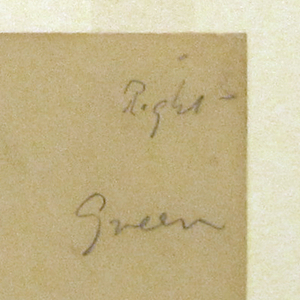 Right
Green